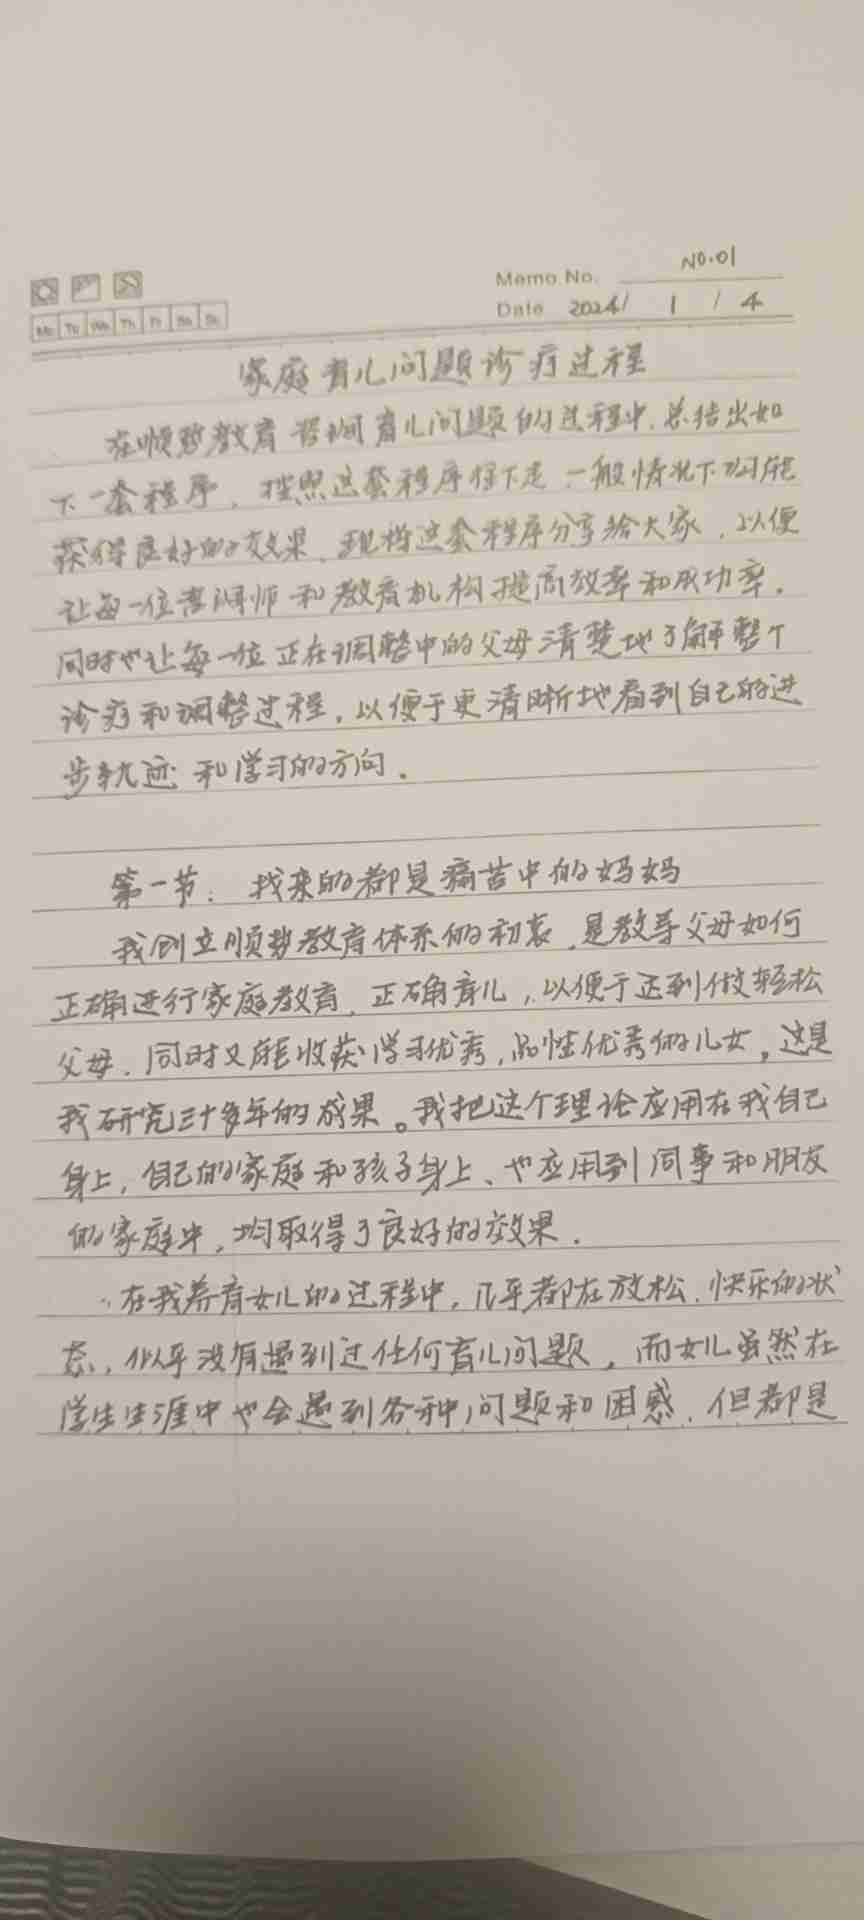 Memo No. NO.01
Mo Tu We Th Fr Sa Su
Date 2024/ 1 / 4
家庭育儿问题诊疗过程
在顺势教育咨询育儿问题的过程中,总结出如
下一套程序,按照这套程序往下走,一般情况下均能
获得良好的效果,现将这套程序分享给大家,以便
让每一位咨询师和教育机构提高效率和成功率,
同时也让每一位正在调整中的父母清楚地了解整个
诊疗和调整过程,以便于更清晰地看到自己的进
步轨迹和学习的方向。
第一节:找来的都是痛苦中的妈妈
我创立顺势教育体系的初衷,是教导父母如何
正确进行家庭教育,正确育儿,以便于达到做轻松
父母,同时又能收获学习优秀,品性优秀的儿女,这是
我研究三十多年的成果。我把这个理论应用在我自己
身上,自己的家庭和孩子身上、也应用到同事和朋友
的家庭中,均取得了良好的效果.
在我养育女儿的过程中,几乎都在放松、快乐的状
态,似乎没有遇到过任何育儿问题,而女儿虽然在
学生生涯中也会遇到各种问题和困惑,但都是